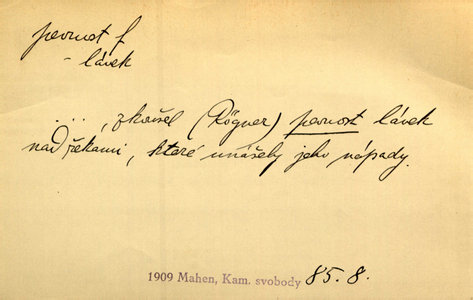 pevnost f
- lávek
...., zkoušel (Rögner) pevnost lávek
nad řekami, které unášely jeho nápady.
1909 Mahen, Kam. svobody 85.8.